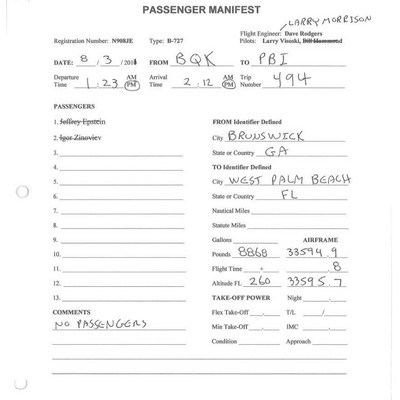 PASSENGER MANIFEST
LARRY MORRISON
Flight Engineer: Dave Rodgers
Registration Number: N908JE Type: B-727 Pilots: Larry Visoski, Bill Hammond
DATE: 8/3/2011 FROM BQK TO PBI
Departure Time 1:23 AM PM Arrival Time 2:12 AM PM Trip Number 494
PASSENGERS
1. Jeffrey Epstein FROM Identifier Defined
2. Igor Zinoviev City BRUNSWICK
3. State or Country GA
4. TO Identifier Defined
5. City WEST PALM BEACH
6. State or Country FL
7. Nautical Miles
8. Statute Miles
9. Gallons AIRFRAME
10. Pounds 8868 33594.9
11. Flight Time + .8
12. Altitude FL 260 33595.7
13. TAKE-OFF POWER Night
COMMENTS Flex Take-Off T/L /
NO PASSENGERS Min Take-Off IMC
Condition Approach